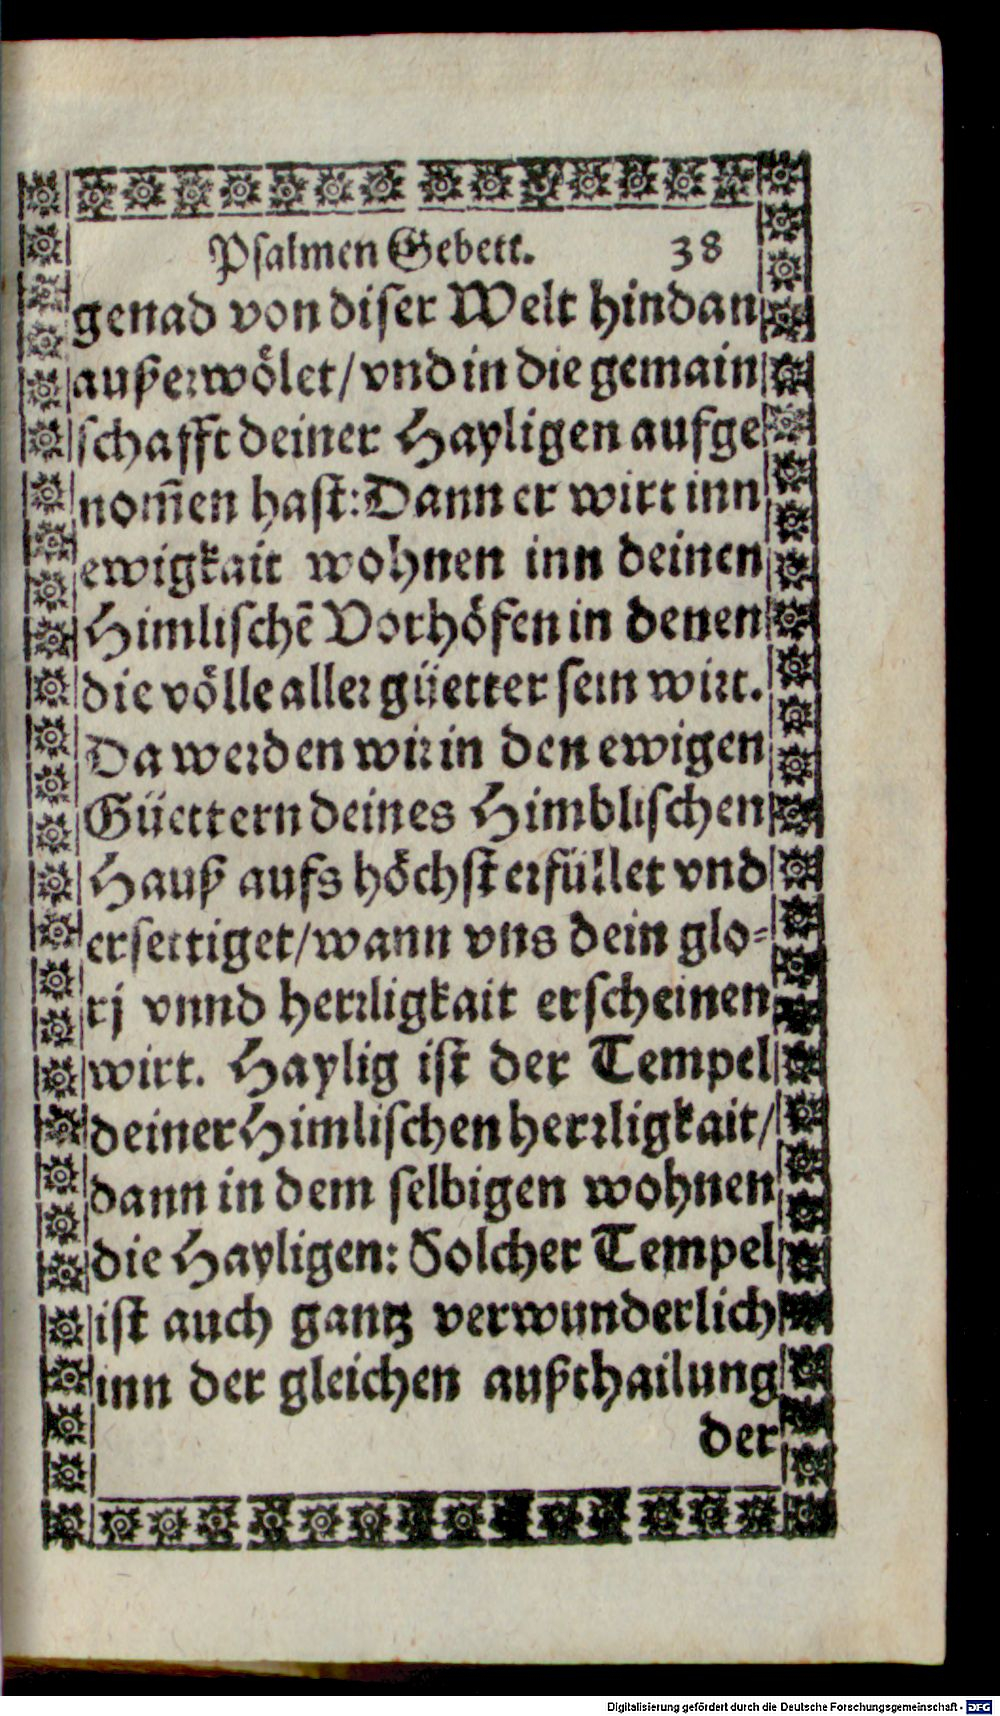 Psalmen Gebett. 38
genad von diser Welt hindan
außerwölet/ vnd in die gemain
schafft deiner Hayligen aufge
nom̄en hast: Dann er wirt inn
ewigkait wohnen inn deinen
Himlischē Vorhöfen in denen
die völle aller güetter sein wirt.
Da werden wir in den ewigen
Güettern deines Himblischen
Hauß aufs höchst erfüllet vnd
ersettiget/ wann vns dein glo-
rj vnnd herrligkait erscheinen
wirt. Haylig ist der Tempel
deiner Himlischen herrligkait/
dann in dem selbigen wohnen
die Hayligen: Solcher Tempel
ist auch gantz verwunderlich
inn der gleichen außthailung
der
Digitalisierung gefördert durch die Deutsche Forschungsgemeinschaft - DFG